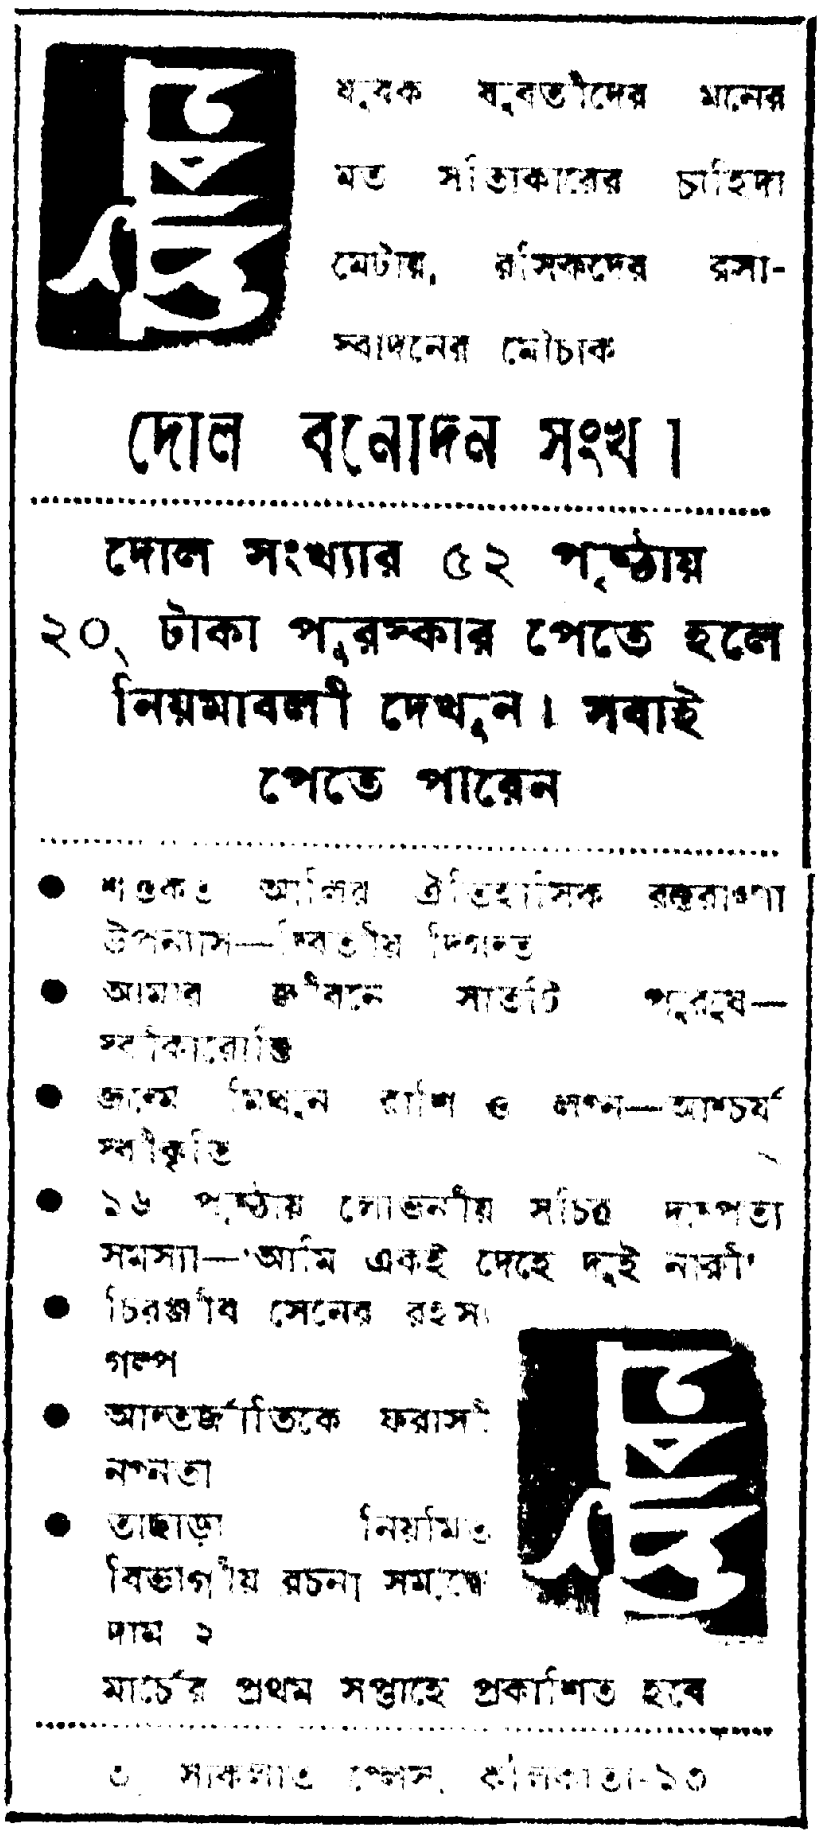 যুবক যুবতীদের মনের
মত সত্যিকারের চাহিদা
মেটায়, রসিকদের রসা-
স্বাদনের মৌচাক
দোল বিনোদন সংখ্যা
দোল সংখ্যার ৫২ পৃষ্ঠায়
২০্ টাকা পুরস্কার পেতে হলে
নিয়মাবলী দেখুন। সবাই
পেতে পারেন
● শওকত আলির ঐতিহাসিক রক্তরাঙ্গা
উপন্যাস—দ্বিতীয় দিগন্ত
● আমার জীবনে সাতটি পুরুষ—
স্বীকারোক্তি
● জন্মে মিথুন রাশি ও লগ্ন—আশ্চর্য
স্বীকৃতি
● ১৬ পৃষ্ঠায় লোভনীয় সচিত্র দাম্পত্য
সমস্যা—'আমি একই দেহে দুই নারী'
● চিরঞ্জীব সেনের রহস্য
গল্প
● আন্তর্জাতিকে ফরাসী
নগ্নতা
● তাছাড়া নিয়মিত
বিভাগীয় রচনা সমৃদ্ধ
দাম ২
মার্চের প্রথম সপ্তাহে প্রকাশিত হবে
৩, সাকলাত প্লেস, কলিকাতা-১৩